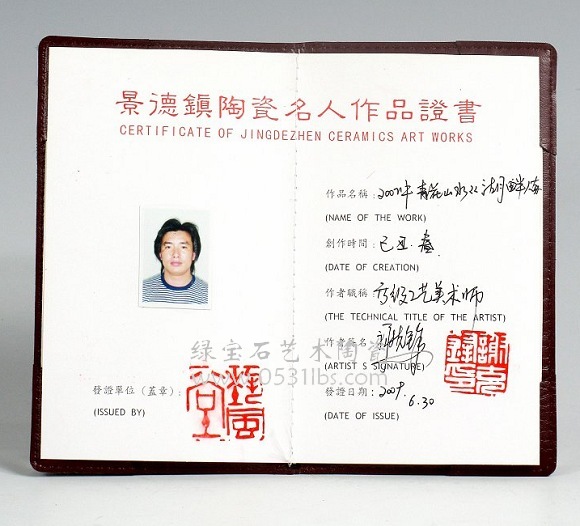 景德鎮陶瓷名人作品證書
CERTIFICATE OF JINGDEZHEN CERAMICS ART WORKS
作品名稱：青花山水 湖畔
(NAME OF THE WORK)
創作時間：己丑.春
(DATE OF CREATION)
作者職稱：高级工艺美术师
(THE TECHNICAL TITLE OF THE ARTIST)
作者簽名：
(ARTIST S SIGNATURE)
發證日期：2009.6.30
(DATE OF ISSUE)
發證單位（蓋章）：
(ISSUED BY)
绿宝石艺术陶瓷
www.0531lbs.com